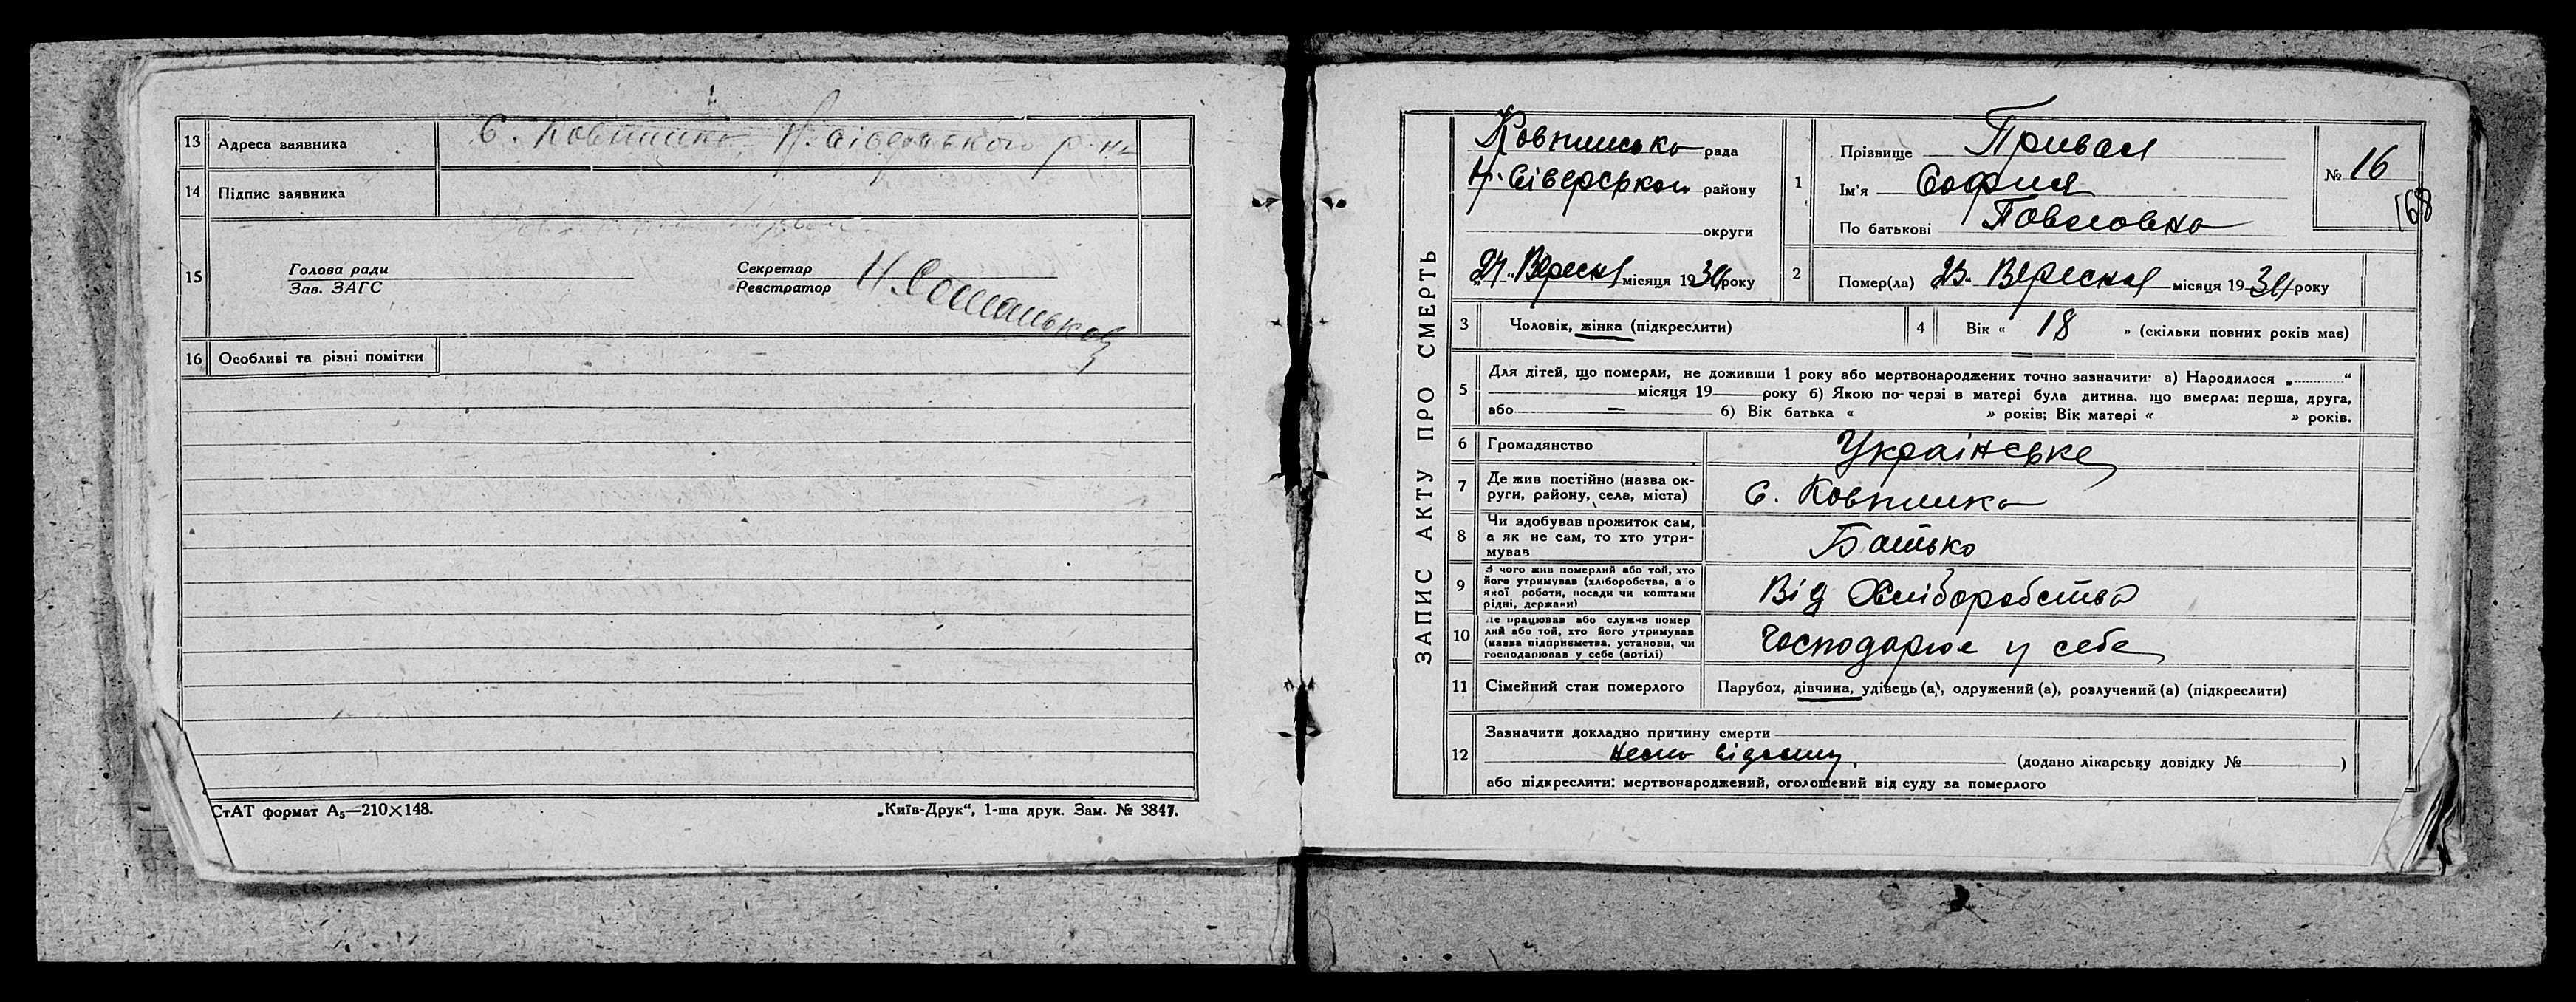 13 Адреса заявника с. Ковпинка Н. Сіверського р-на
14 Підпис заявника
15 Голова ради
Зав. ЗАГС
Секретар
Реєстратор
16 Особливі та різні помітки
СтАТ формат А₅—210×148.
„Київ-Друк“, 1-ша друк. Зам. № 3847.
ЗАПИС АКТУ ПРО СМЕРТЬ
Ковпинська рада
Н. Сіверськ. району
округи
місяця 1934 року
1 Прізвище Привал
Ім'я София
По батькові Павловна
№ 16
168
2 Помер(ла) „23“ Вересня місяця 1934 року
3 Чоловік, жінка (підкреслити)
4 Вік « 18 » (скільки повних років має)
5 Для дітей, що померли, не доживши 1 року або мертвонароджених точно зазначити: а) Народилося „ “
місяця 19 року б) Якою по черзі в матері була дитина, що вмерла: перша, друга,
або — б) Вік батька « » років; Вік матері « » років.
6 Громадянство Українське
7 Де жив постійно (назва ок-
руги, району, села, міста) с. Ковпинка
8 Чи здобував прожиток сам,
а як не сам, то хто утри-
мував Батько
9 З чого жив померлий або той, хто
його утримував (хліборобства, а о
якої роботи, посади чи коштами
рідні, держави) Від Хліборобства
10 Де працював або служив помер
лий або той, хто його утримував
(назва підприємства, установи, чи
господарював у себе (артілі) Господарює у себе
11 Сімейний стан померлого Парубок, дівчина, удівець (а), одружений (а), розлучений (а) (підкреслити)
12 Зазначити докладно причину смерти
(додано лікарську довідку № )
або підкреслити: мертвонароджений, оголошений від суду за померлого